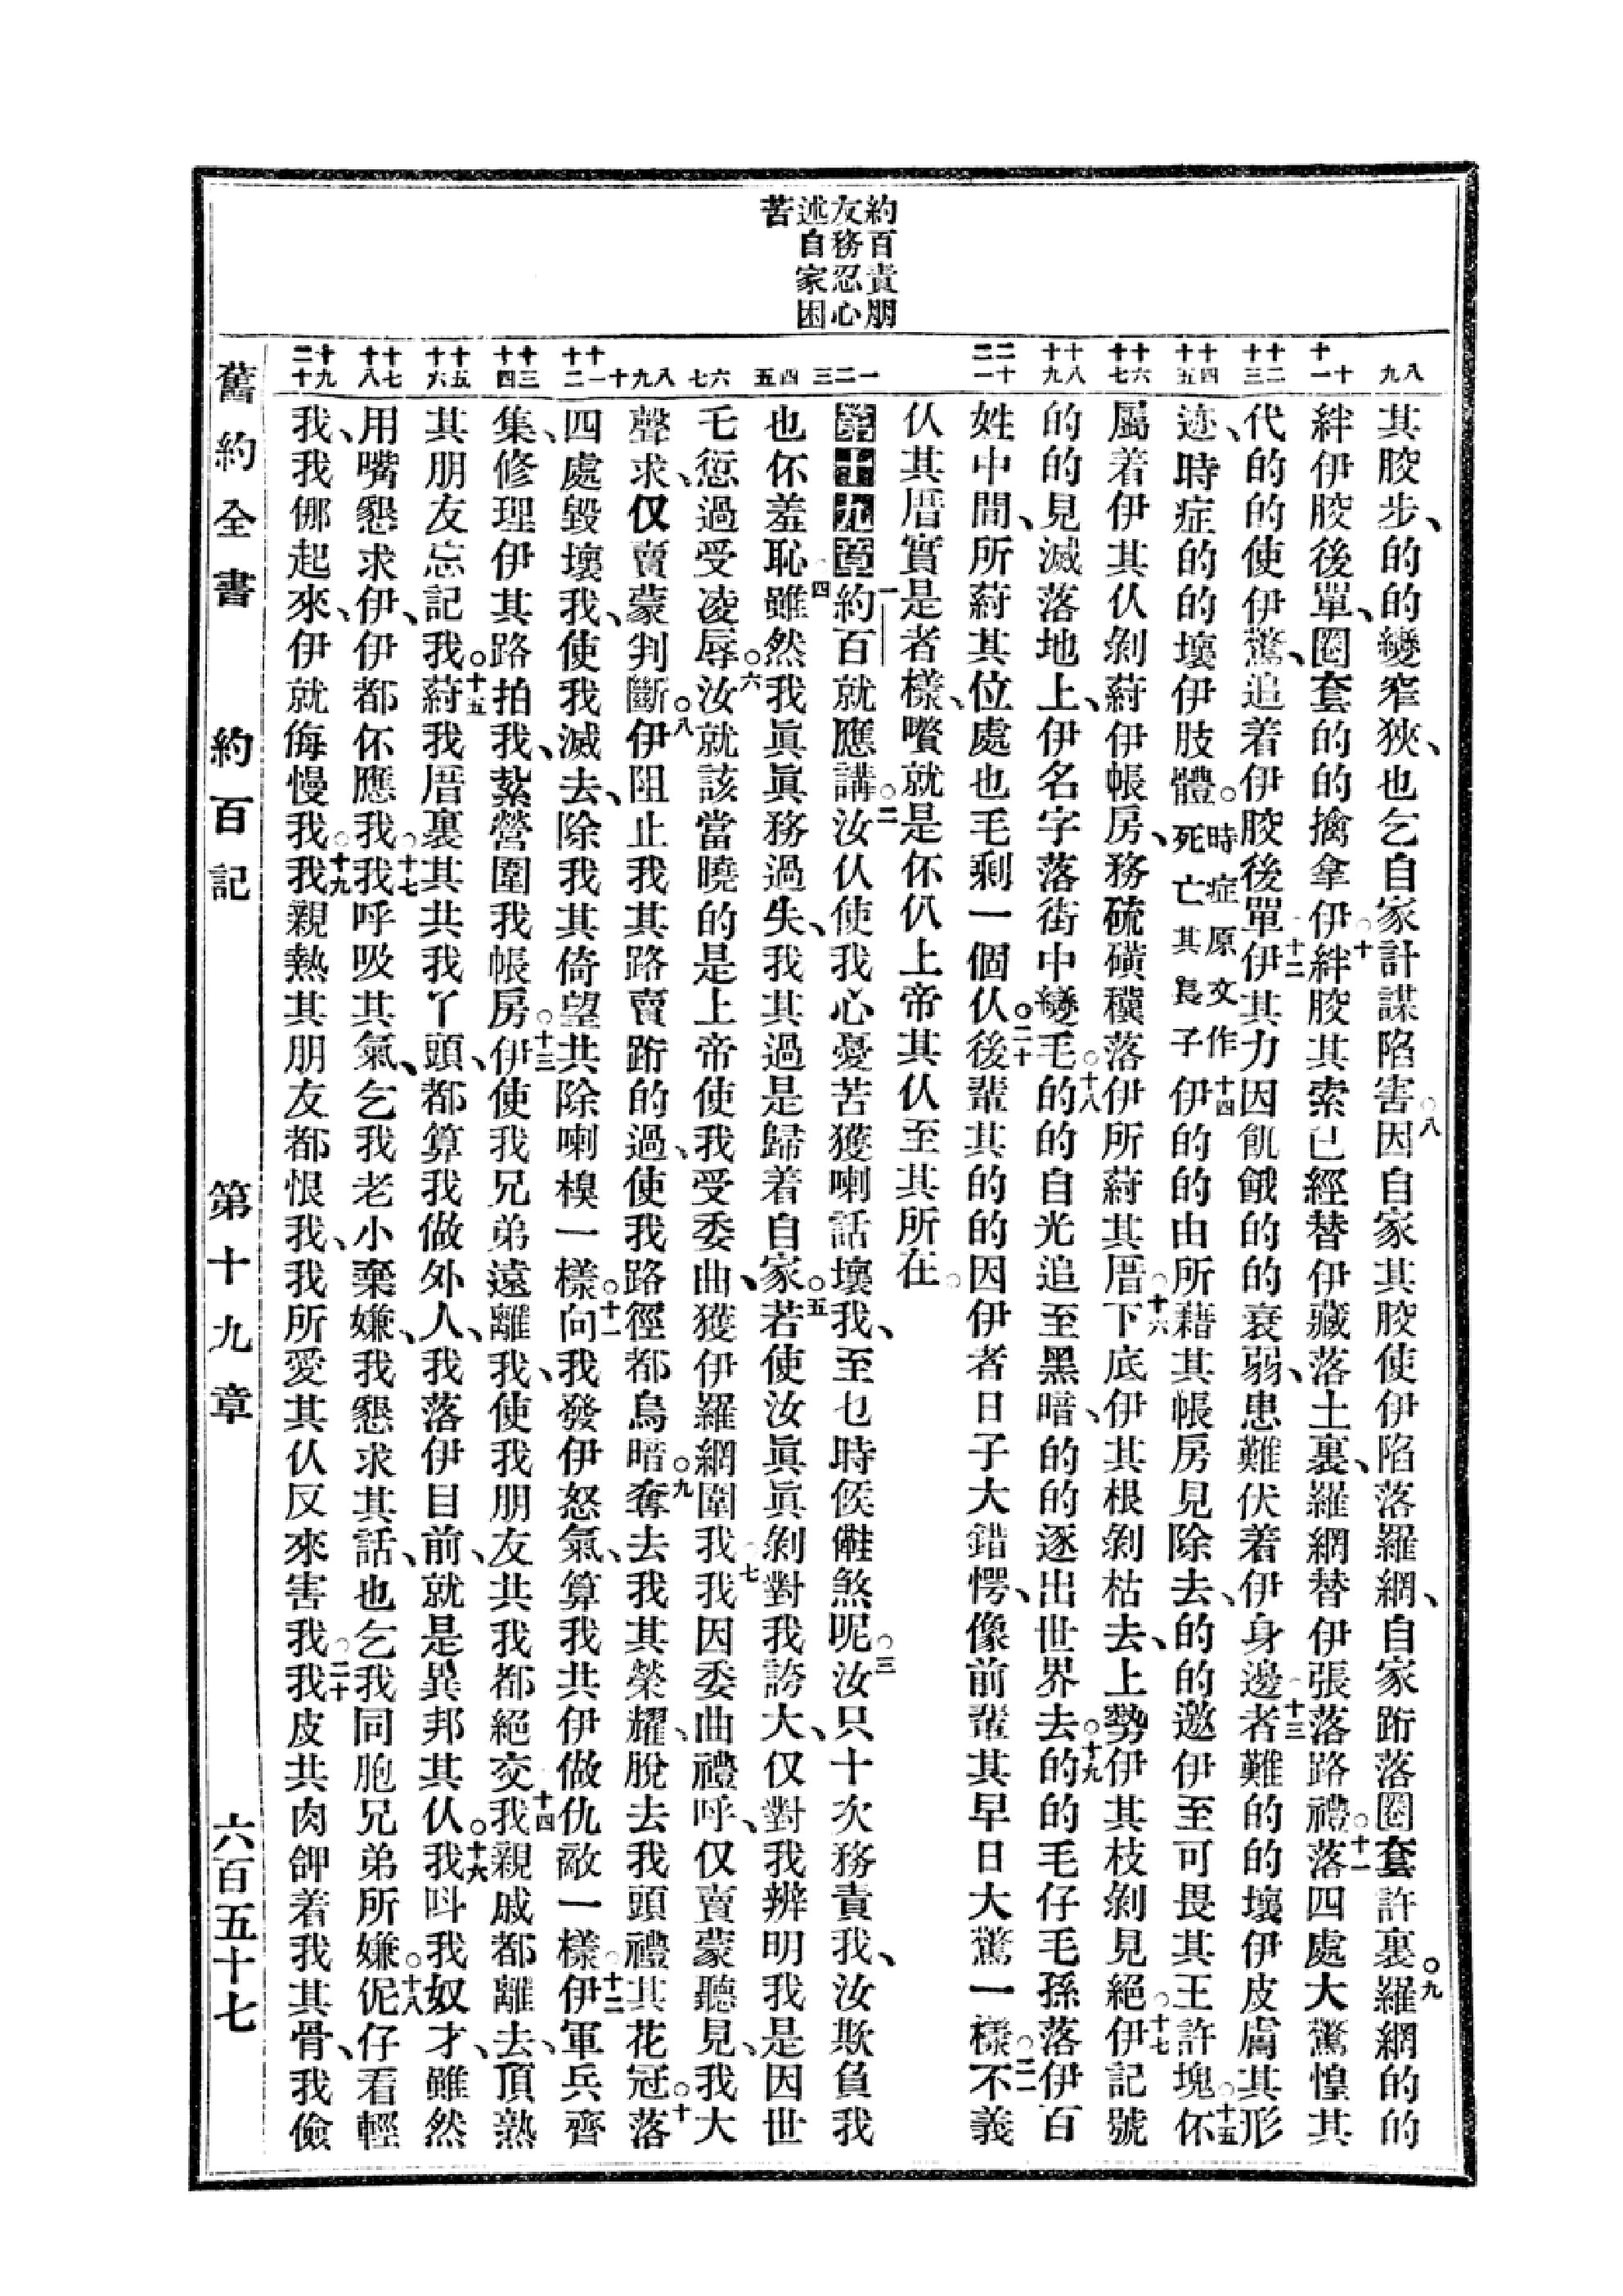 約百責朋
友務忍心
述自家困
苦
八 九
十 十一
十二 十三
十四 十五
十六 十七
十八 十九
二十 二一
一 二 三
四 五
六 七
八 九 十
十一 十二
十三 十四
十五 十六
十七 十八
十九 二十
其骹步、的的變窄狹、也乞自家計謀陷害。八因自家其骹使伊陷落羅網、自家䟓落圈套許裏。九羅網的的
絆伊骹後單、圈套的的擒拿伊。十絆骹其索已經替伊藏落土裏、羅網替伊張落路禮。十一落四處大驚惶其
代的的使伊驚、追着伊骹後單。十二伊其力因飢餓的的衰弱、患難伏着伊身邊。十三者難的的壞伊皮膚其形
迹、時症的的壞伊肢體。時症原文作死亡其長子十四伊的的由所藉其帳房見除去、的的邀伊至可畏其王許塊。十五伓
屬着伊其仈剝蒔伊帳房、務硫磺䆀落伊所蒔其厝。十六下底伊其根剝枯去、上勢伊其枝剝見絕。十七伊記號
的的見滅落地上、伊名字落街中變毛。十八的的自光追至黑暗、的的逐出世界去。十九的的毛仔毛孫落伊百
姓中間、所蒔其位處也毛剩一個仈。二十後輩其的的因伊者日子大錯愕、像前輩其早日大驚一樣。二一不義
仈其厝實是者樣、嚽就是伓仈上帝其仈至其所在。
第十九章 一約百就應講。二汝仈使我心憂苦獲喇話壞我、至乜時候𠍇煞呢。三汝只十次務責我、汝欺負我
也伓羞恥。四雖然我眞眞務過失、我其過是歸着自家。五若使汝眞眞剝對我誇大、仅對我辨明我是因世
乇愆過受凌辱。六汝就該當曉的是上帝使我受委曲、獲伊羅網圍我。七我因委曲禮呼、仅賣蒙聽見、我大
聲求、仅賣蒙判斷。八伊阻止我其路賣䟓的過、使我路徑都烏暗。九奪去我其榮耀、脫去我頭禮其花冠。十落
四處毀壞我、使我滅去、除我其倚望共除喇模一樣。十一向我發伊怒氣、算我共伊做仇敵一樣。十二伊軍兵齊
集、修理伊其路拍我、紮營圍我帳房。十三伊使我兄弟遠離我、使我朋友共我都絕交。十四我親戚都離去、頂熟
其朋友忘記我。十五蒔我厝裏其共我丫頭、都算我做外人、我落伊目前、就是異邦其仈。十六我呌我奴才、雖然
用嘴懇求伊、伊都伓應我。十七我呼吸其氣、乞我老小棄嫌、我懇求其話、也乞我同胞兄弟所嫌。十八伲仔看輕
我、我㑚起來、伊就侮慢我。十九我親熱其朋友都恨我、我所愛其仈反來害我。二十我皮共肉䶎着我其骨、我儉
舊約全書 約百記 第十九章 六百五十七